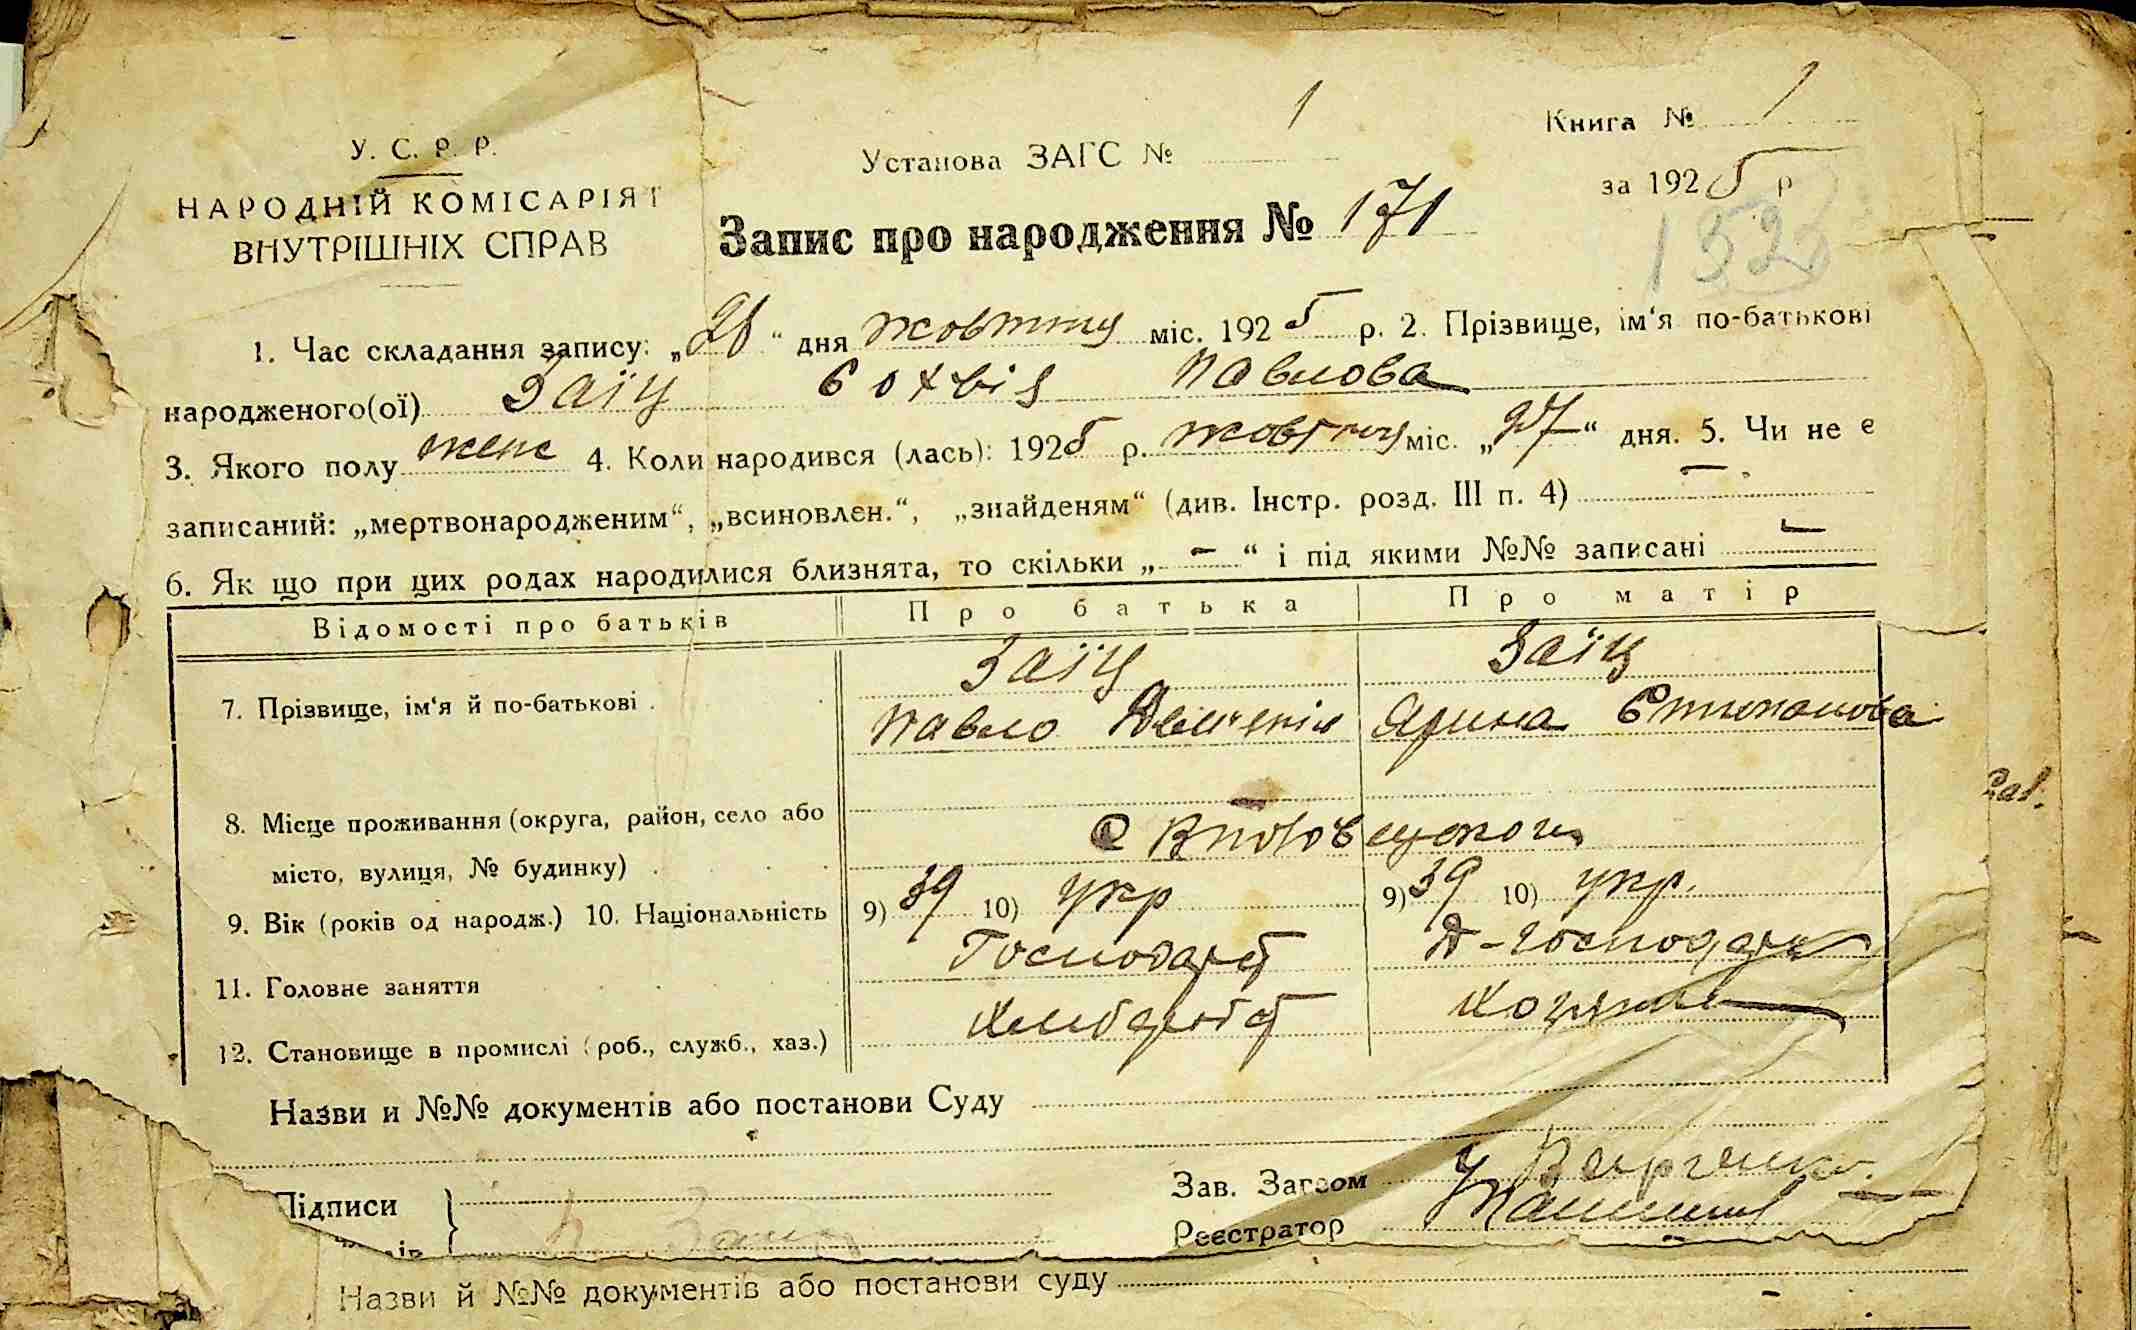 У. С. Р. Р.
НАРОДНІЙ КОМІСАРІЯТ
ВНУТРІШНІХ СПРАВ
Установа ЗАГС № 1
Книга № 1
за 1925 р
Запис про народження № 171
132
1. Час складання запису: „28“ дня жовтня міс. 1925 р. 2. Прізвище, ім‘я по-батькові
народженого(ої) Заїц Павлова
3. Якого полу женс 4. Коли народився (лась): 1925 р. жовтня міс. „27“ дня. 5. Чи не є
записаний: „мертвонародженим“, „всиновлен.“, „знайденям“ (див. Інстр. розд. III п. 4) —
6. Як що при цих родах народилися близнята, то скільки „—“ і під якими №№ записані —
Відомості про батьків
Про батька
Про матір
7. Прізвище, ім‘я й по-батькові .
Заїц
Павло
Заїц
Ярина Степанова
8. Місце проживання (округа, район, село або
місто, вулиця, № будинку) .
с
9. Вік (років од народж.) 10. Національність
9) 39 10) укр
9) 39 10) укр.
11. Головне заняття
Господар
Д-господар
12. Становище в промислі (роб., служб., хаз.)
Хлібороб
Назви и №№ документів або постанови Суду
Підписи
Зав. Загсом
Реєстратор
Назви й №№ документів або постанови суду